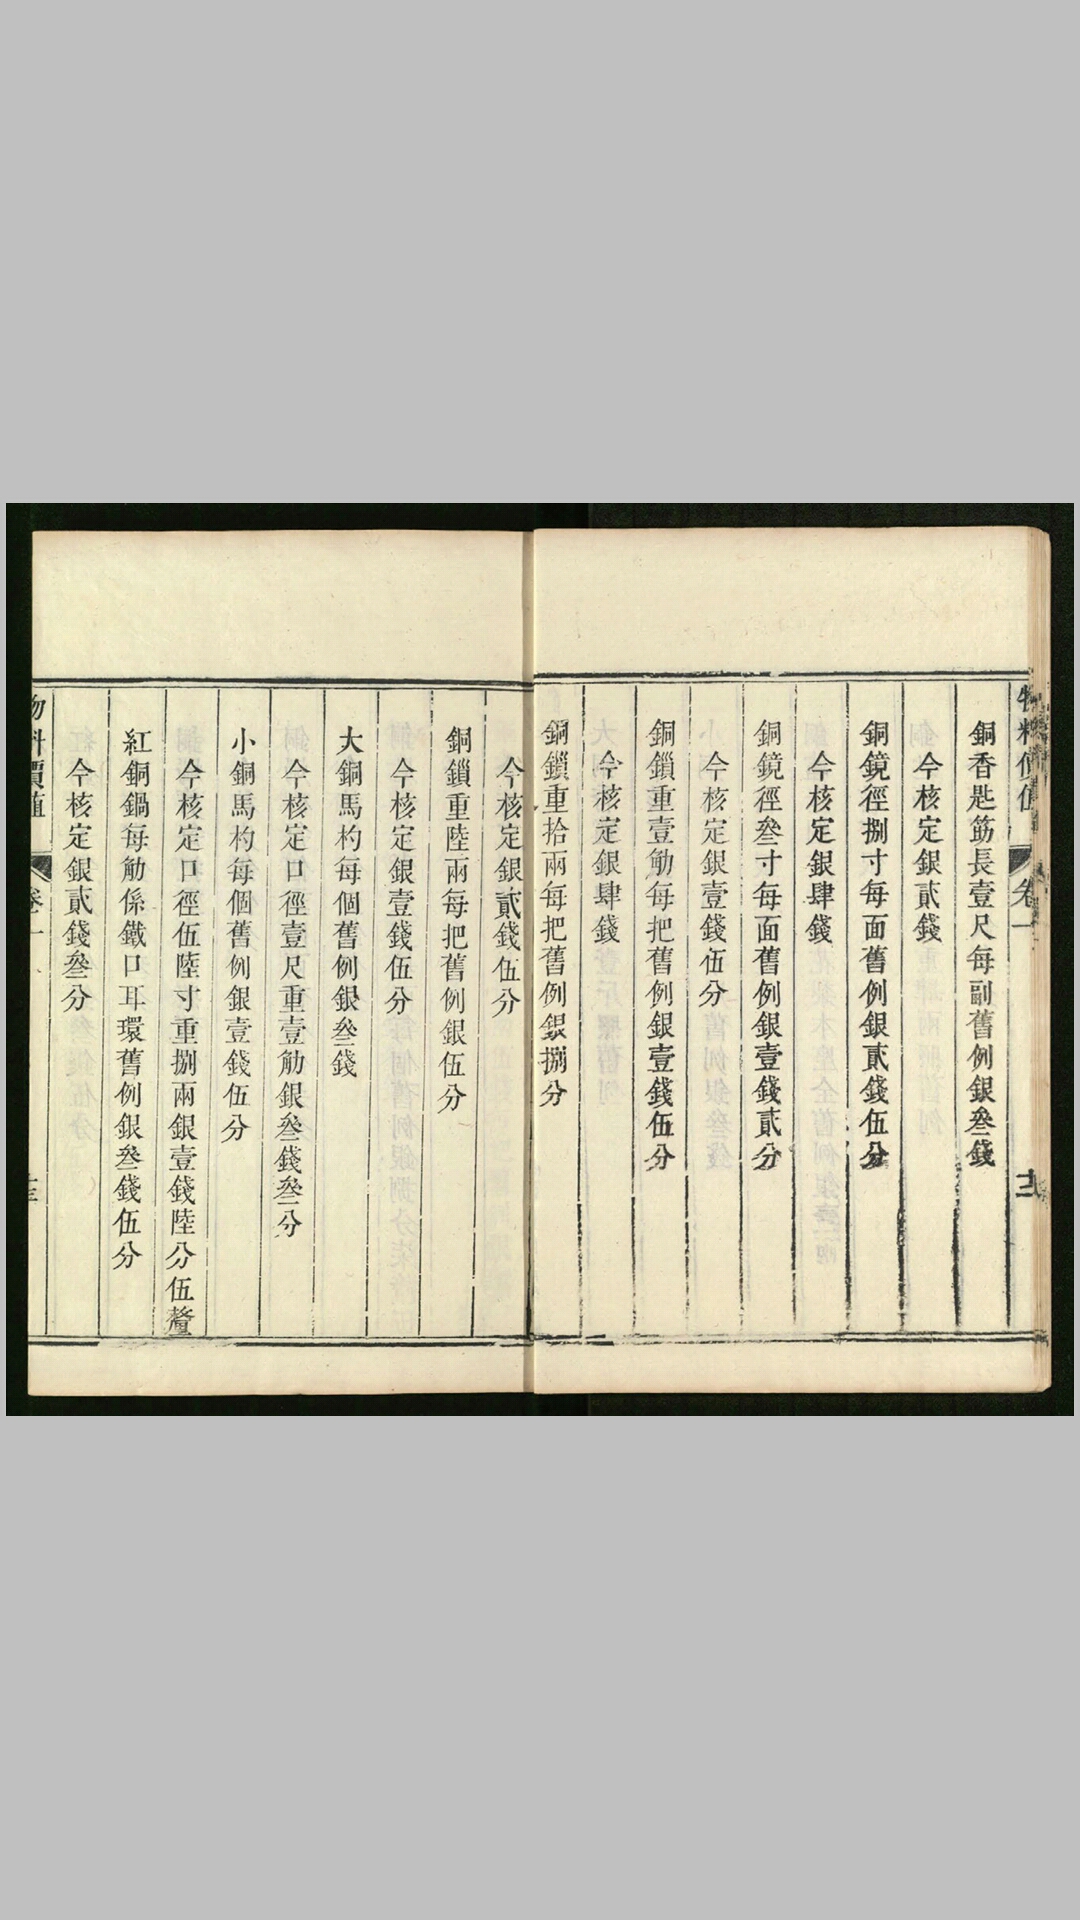 物料價值 卷一 十二
銅香匙筯長壹尺每副舊例銀叁錢
今核定銀貳錢
銅鏡徑捌寸每面舊例銀貳錢伍分
今核定銀肆錢
銅鏡徑叁寸每面舊例銀壹錢貳分
今核定銀壹錢伍分
銅鎖重壹觔每把舊例銀壹錢伍分
今核定銀肆錢
銅鎖重拾兩每把舊例銀捌分
今核定銀貳錢伍分
銅鎖重陸兩每把舊例銀伍分
今核定銀壹錢伍分
大銅馬杓每個舊例銀叁錢
今核定口徑壹尺重壹觔銀叁錢叁分
小銅馬杓每個舊例銀壹錢伍分
今核定口徑伍陸寸重捌兩銀壹錢陸分伍釐
紅銅鍋每觔係鐵口耳環舊例銀叁錢伍分
今核定銀貳錢叁分
物料價值 卷一